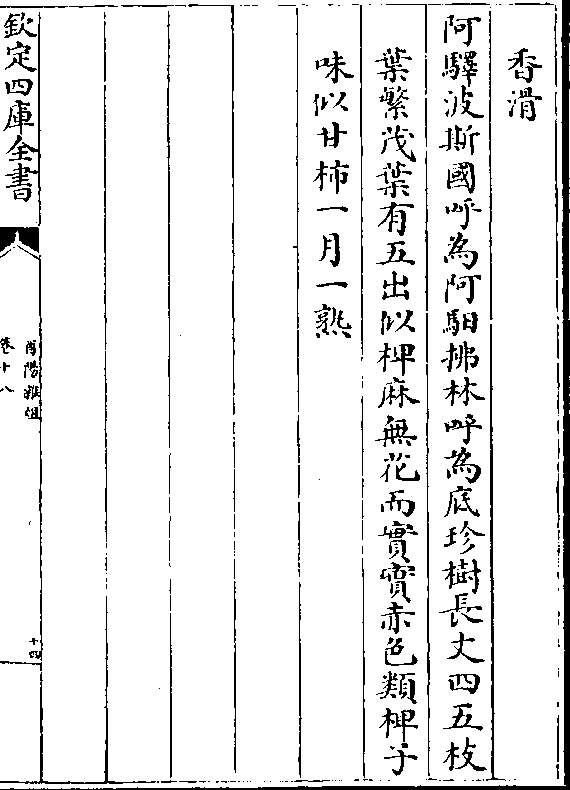 香滑
阿驛波斯國呼為阿馹拂林呼為底珍樹長丈四五枝
葉繁茂葉有五出似椑麻無花而實實赤色類椑子
味似甘柿一月一熟
欽定四庫全書
酉陽雜俎
卷十八
十四